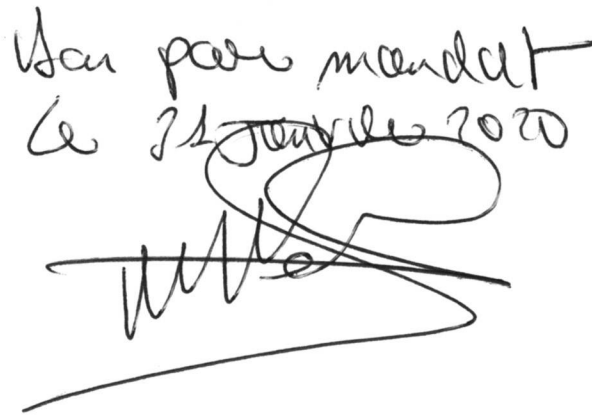 Bon pour mandat
Le 31 janvier 2020